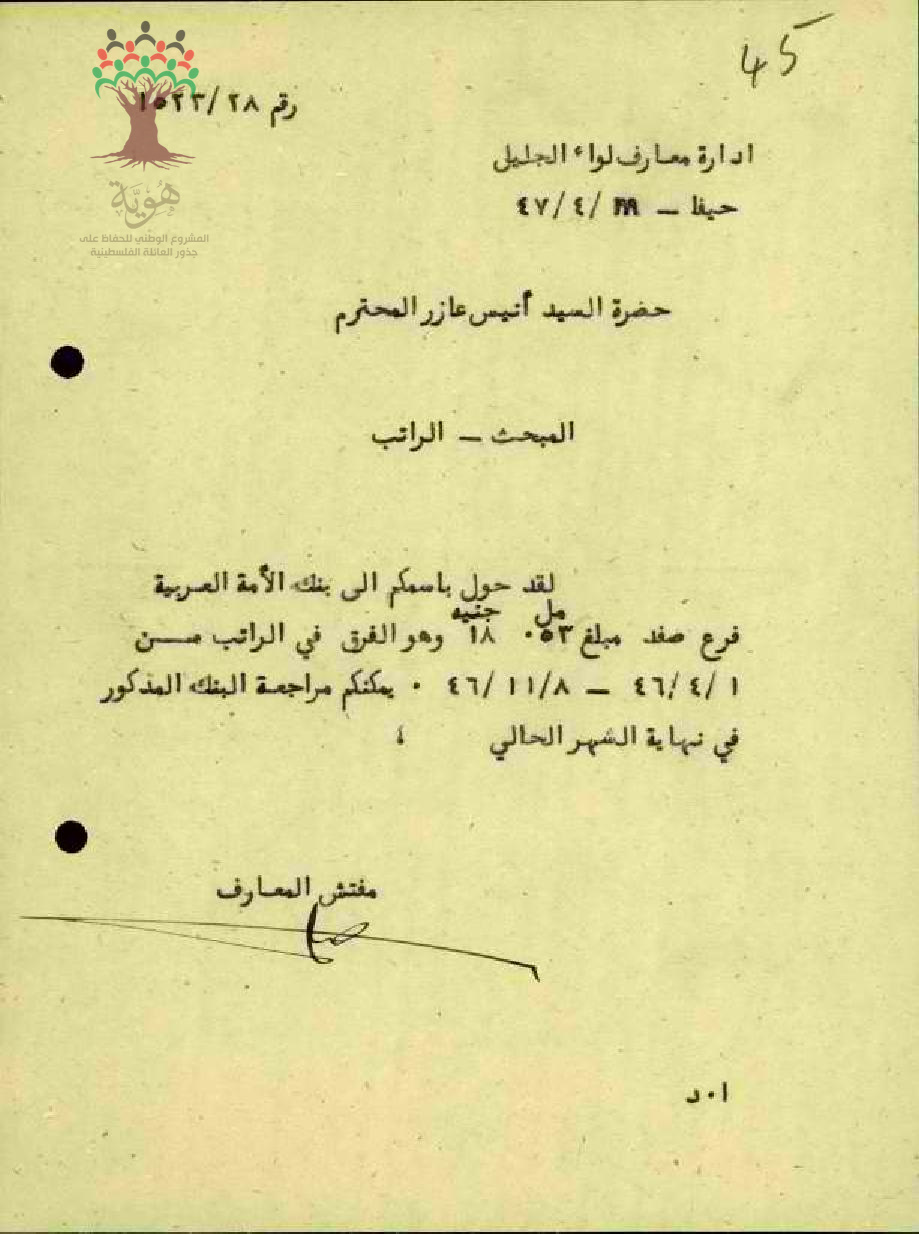 45
رقم ١٥٢٣/٢٨
ادارة معارف لواء الجليل
حيفا – /٤٧/٤
هُوِيَّة
المشروع الوطني للحفاظ على
جذور العائلة الفلسطينية
حضرة السيد أنيس عازر المحترم
المبحث – الراتب
لقد حول باسمكم الى بنك الأمة العربية
مل جنيه
فرع صفد مبلغ ٠٥٣ ١٨ وهو الفرق في الراتب مـــن
٤٦/٤/١ – ٤٦/١١/٨ ٠ يمكنكم مراجعة البنك المذكور
في نهاية الشهر الحالي ،
مفتش المعارف
ا٠د